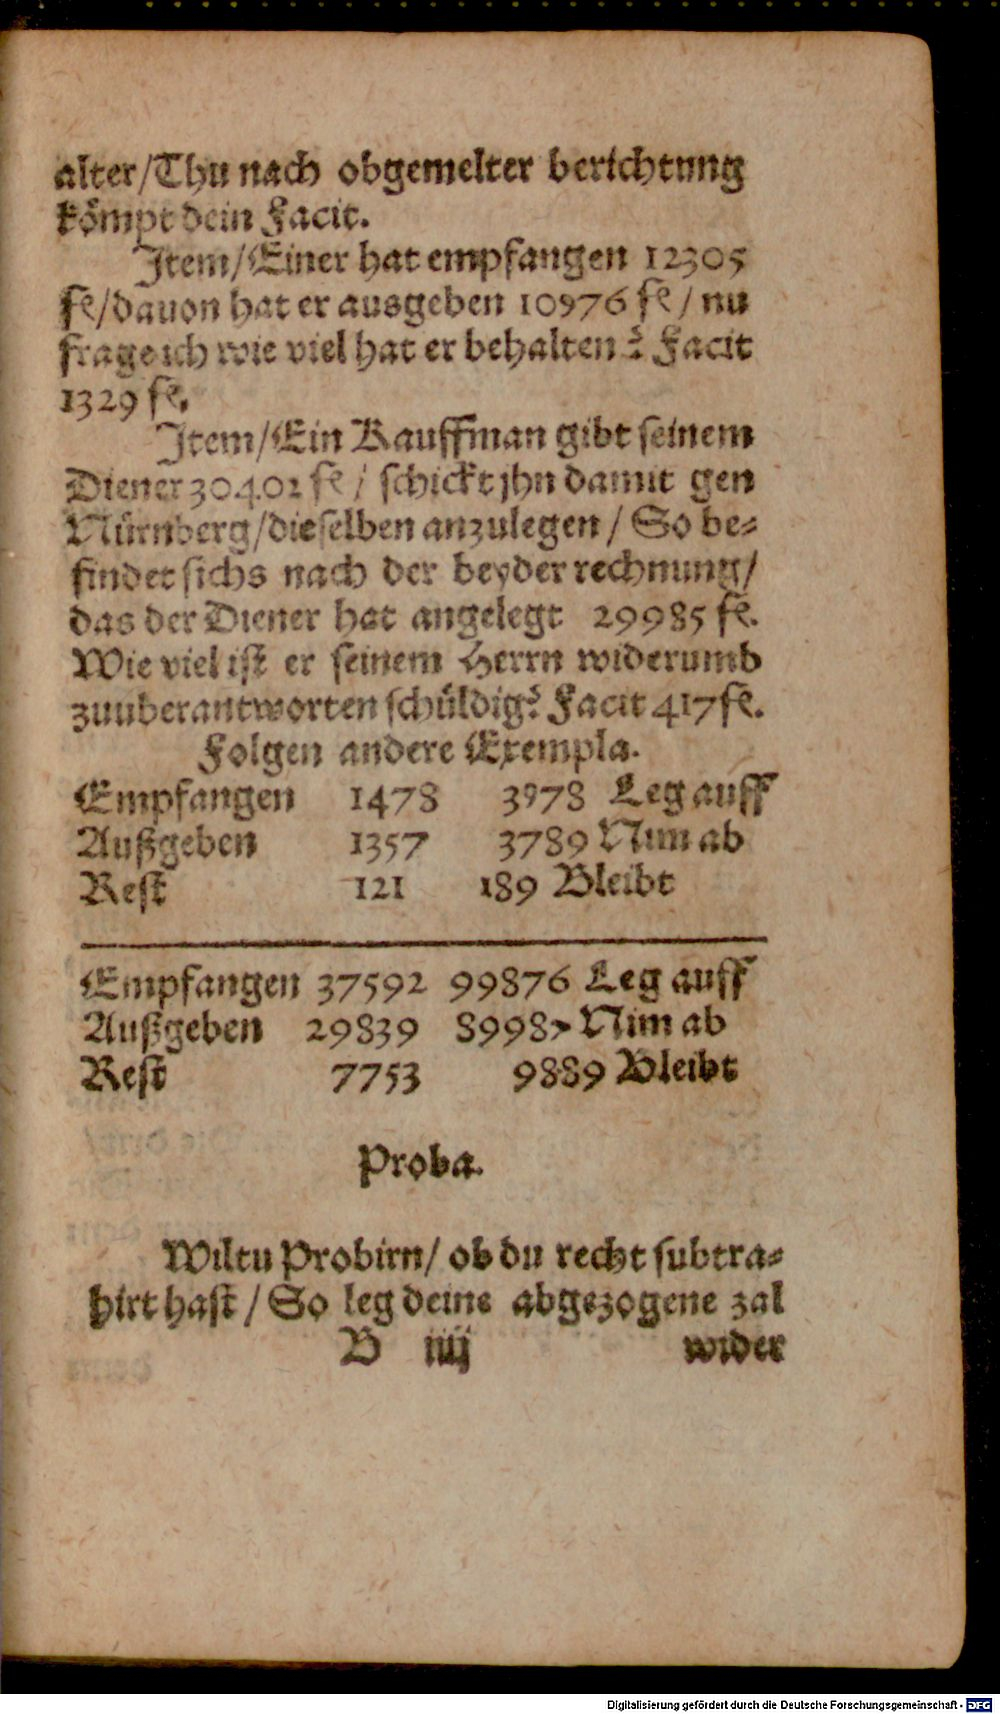 alter/Thu nach obgemelter berichtung
kömpt dein Facit.
Item/Einer hat empfangen 12305
fl/dauon hat er ausgeben 10976 fl / nu
frage ich wie viel hat er behalten? Facit
1329 fl.
Item/Ein Kauffman gibt seinem
Diener 30402 fl / schickt jhn damit gen
Nürnberg/dieselben anzulegen / So be⸗
findet sichs nach der beyder rechnung/
das der Diener hat angelegt 29985 fl.
Wie viel ist er seinem Herrn widerumb
zuuberantworten schüldig? Facit 417 fl.
Folgen andere Exempla.
Empfangen 1478 3978 Leg auff
Außgeben 1357 3789 Nim ab
Rest 121 189 Bleibt
Empfangen 37592 99876 Leg auff
Außgeben 29839 89987 Nim ab
Rest 7753 9889 Bleibt
Proba.
Wiltu Probirn/ ob du recht subtra⸗
hirt hast / So leg deine abgezogene zal
B iiij wider
Digitalisierung gefördert durch die Deutsche Forschungsgemeinschaft - DFG